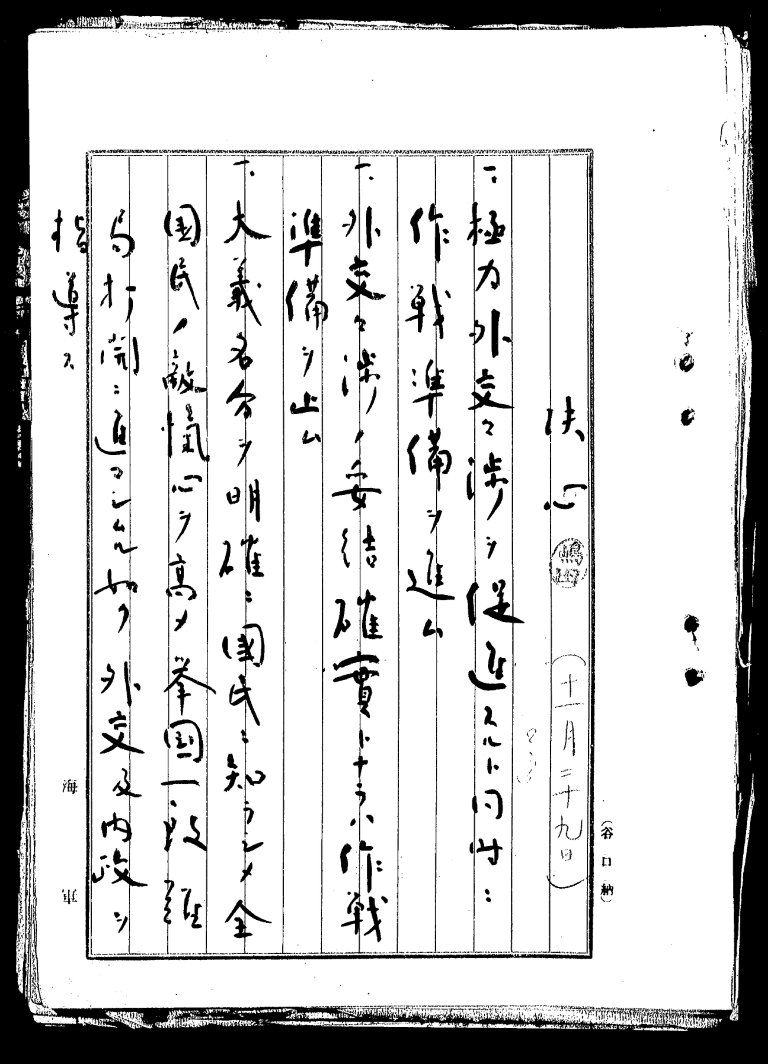 決心 嶋田 (十一月二十九日)
一、極力外交々渉ヲ促進スルト同時ニ
作戦準備ヲ進ム
一、外交々渉ノ妥結確實トナラバ作戦
準備ヲ止ム
一、大義名分ヲ明確ニ國民ニ知ラシメ全
國民ノ敵愾心ヲ高メ挙国一致難
局打開ニ進マシムル如ク外交及内政ヲ
指導ス
(谷口納)
海軍